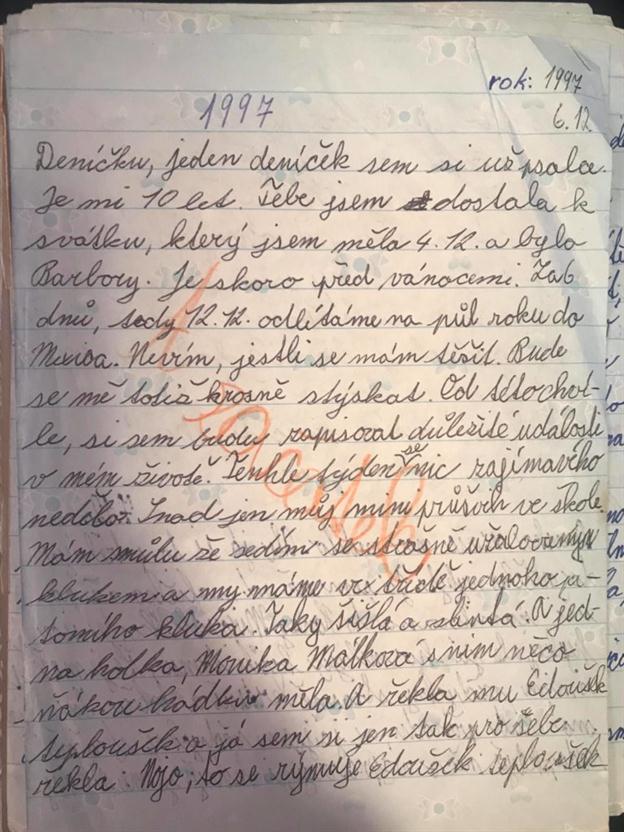 rok: 1997
1997
6.12
Deníčku, jeden deníček sem si už psala.
Je mi 10 let. Tebe jsem dostala k
svátku, který jsem měla 4.12. a bylo
Barbory. Je skoro před vánocemi. Za 6
dnů, tedy 12.12. odlítáme na půl roku do
Mexica. Nevím, jestli se mám těšit. Bude
se mě totiž krosně stýskat. Od tétochví-
le, si sem budu zapisovat důležité události
v mém životě. Tenhle týden se nic zajímavého
nedělo. Snad jen můj mini průšvih ve škole.
Mám smůlu že sedím se strašně užalovaným
klukem a my máme ve třídě jednoho
kluka. Taky šišlá a slintá. A jed-
na holka, Monika Málková s ním něco
ňákou hádku měla. A řekla mu Edoušek
teploušek a já sem si jen tak pro sebe
řekla. Nojo, to se rýmuje Edoušek teploušek